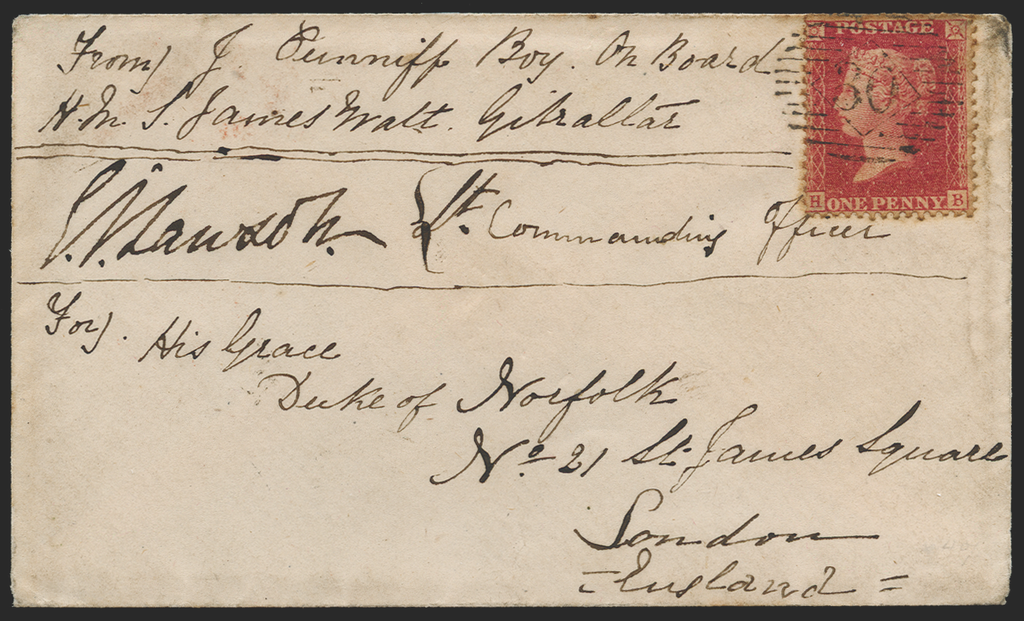 From J. Punniff Boy. On Board
H.M. S. James Watt. Gibraltar
Lt. Commanding Officer
For. His Grace
Duke of Norfolk
No 21 St James Square
London
= England =
POSTAGE
H ONE PENNY B